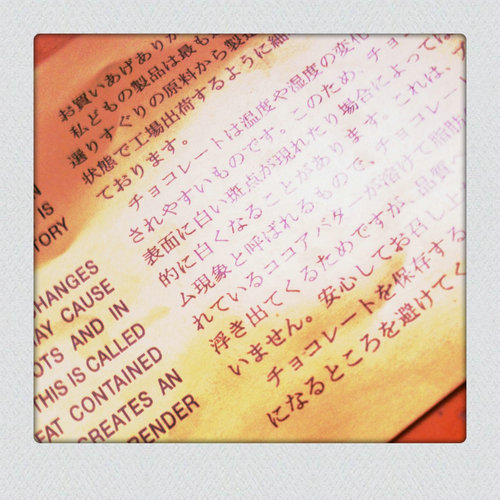 お買いあげありが
私どもの製品は最も
選りすぐりの原料から製造
状態で工場出荷するように細
ております。
チョコレートは温度や湿度の変化
されやすいものです。このため、チョコ
表面に白い斑点が現れたり場合によっては
的に白くなることがあります。これは、
ム現象と呼ばれるもので、チョコレート
れているココアバターが溶けて脂肪
浮き出てくるためですが、品質へ
いません。安心してお召し上が
チョコレートを保存する
になるところを避けてく
IS
TORY
CHANGES
MAY CAUSE
OTS AND IN
THIS IS CALLED
EAT CONTAINED
CREATES AN
RENDER